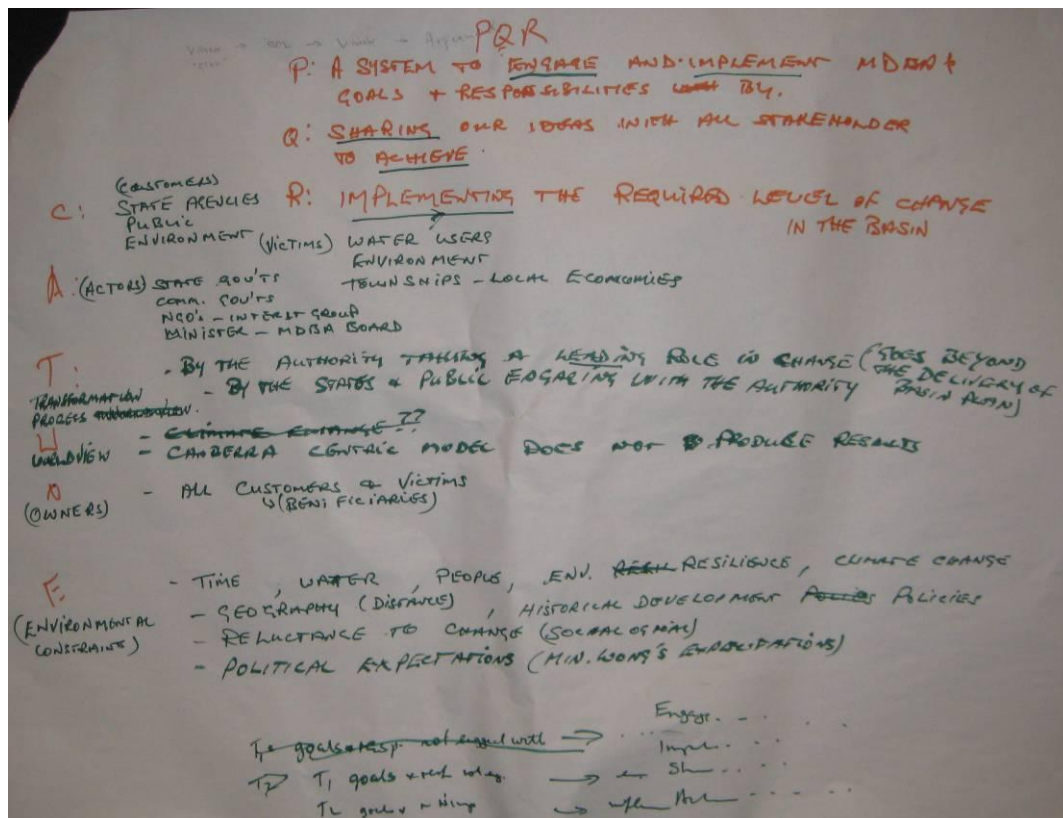 PQR
P: A SYSTEM TO ENGAGE AND IMPLEMENT MDBA
GOALS + RESPONSIBILITIES BY.
Q: SHARING OUR IDEAS WITH ALL STAKEHOLDER
TO ACHIEVE.
R: IMPLEMENTING THE REQUIRED LEVEL OF CHANGE
IN THE BASIN
(CUSTOMERS)
C: STATE AGENCIES
PUBLIC
ENVIRONMENT (VICTIMS) WATER USERS
ENVIRONMENT
TOWNSHIPS - LOCAL ECONOMIES
A: (ACTORS) STATE GOV'TS
COMM. GOV'TS
NGO'S - INTEREST GROUP
MINISTER - MDBA BOARD
T: - BY THE AUTHORITY TAKING A LEADING ROLE IN CHANGE (GOES BEYOND
THE DELIVERY OF
BASIN PLAN)
TRANSFORMATION - BY THE STATES & PUBLIC ENGAGING WITH THE AUTHORITY
PROCESS
W - CLIMATE CHANGE??
WORLDVIEW - CANBERRA CENTRIC MODEL DOES NOT PRODUCE RESULTS
O - ALL CUSTOMERS & VICTIMS
(OWNERS) (BENIFICIARIES)
E - TIME, WATER, PEOPLE, ENV. RESILIENCE, CLIMATE CHANGE
(ENVIRONMENTAL - GEOGRAPHY (DISTANCE), HISTORICAL DEVELOPMENT POLICIES
CONSTRAINTS) - RELUCTANCE TO CHANGE
- POLITICAL EXPECTATIONS (MIN. WONG'S EXPECTATIONS)
goals not engaged with → Engage.....
T1 goals → Sh.....